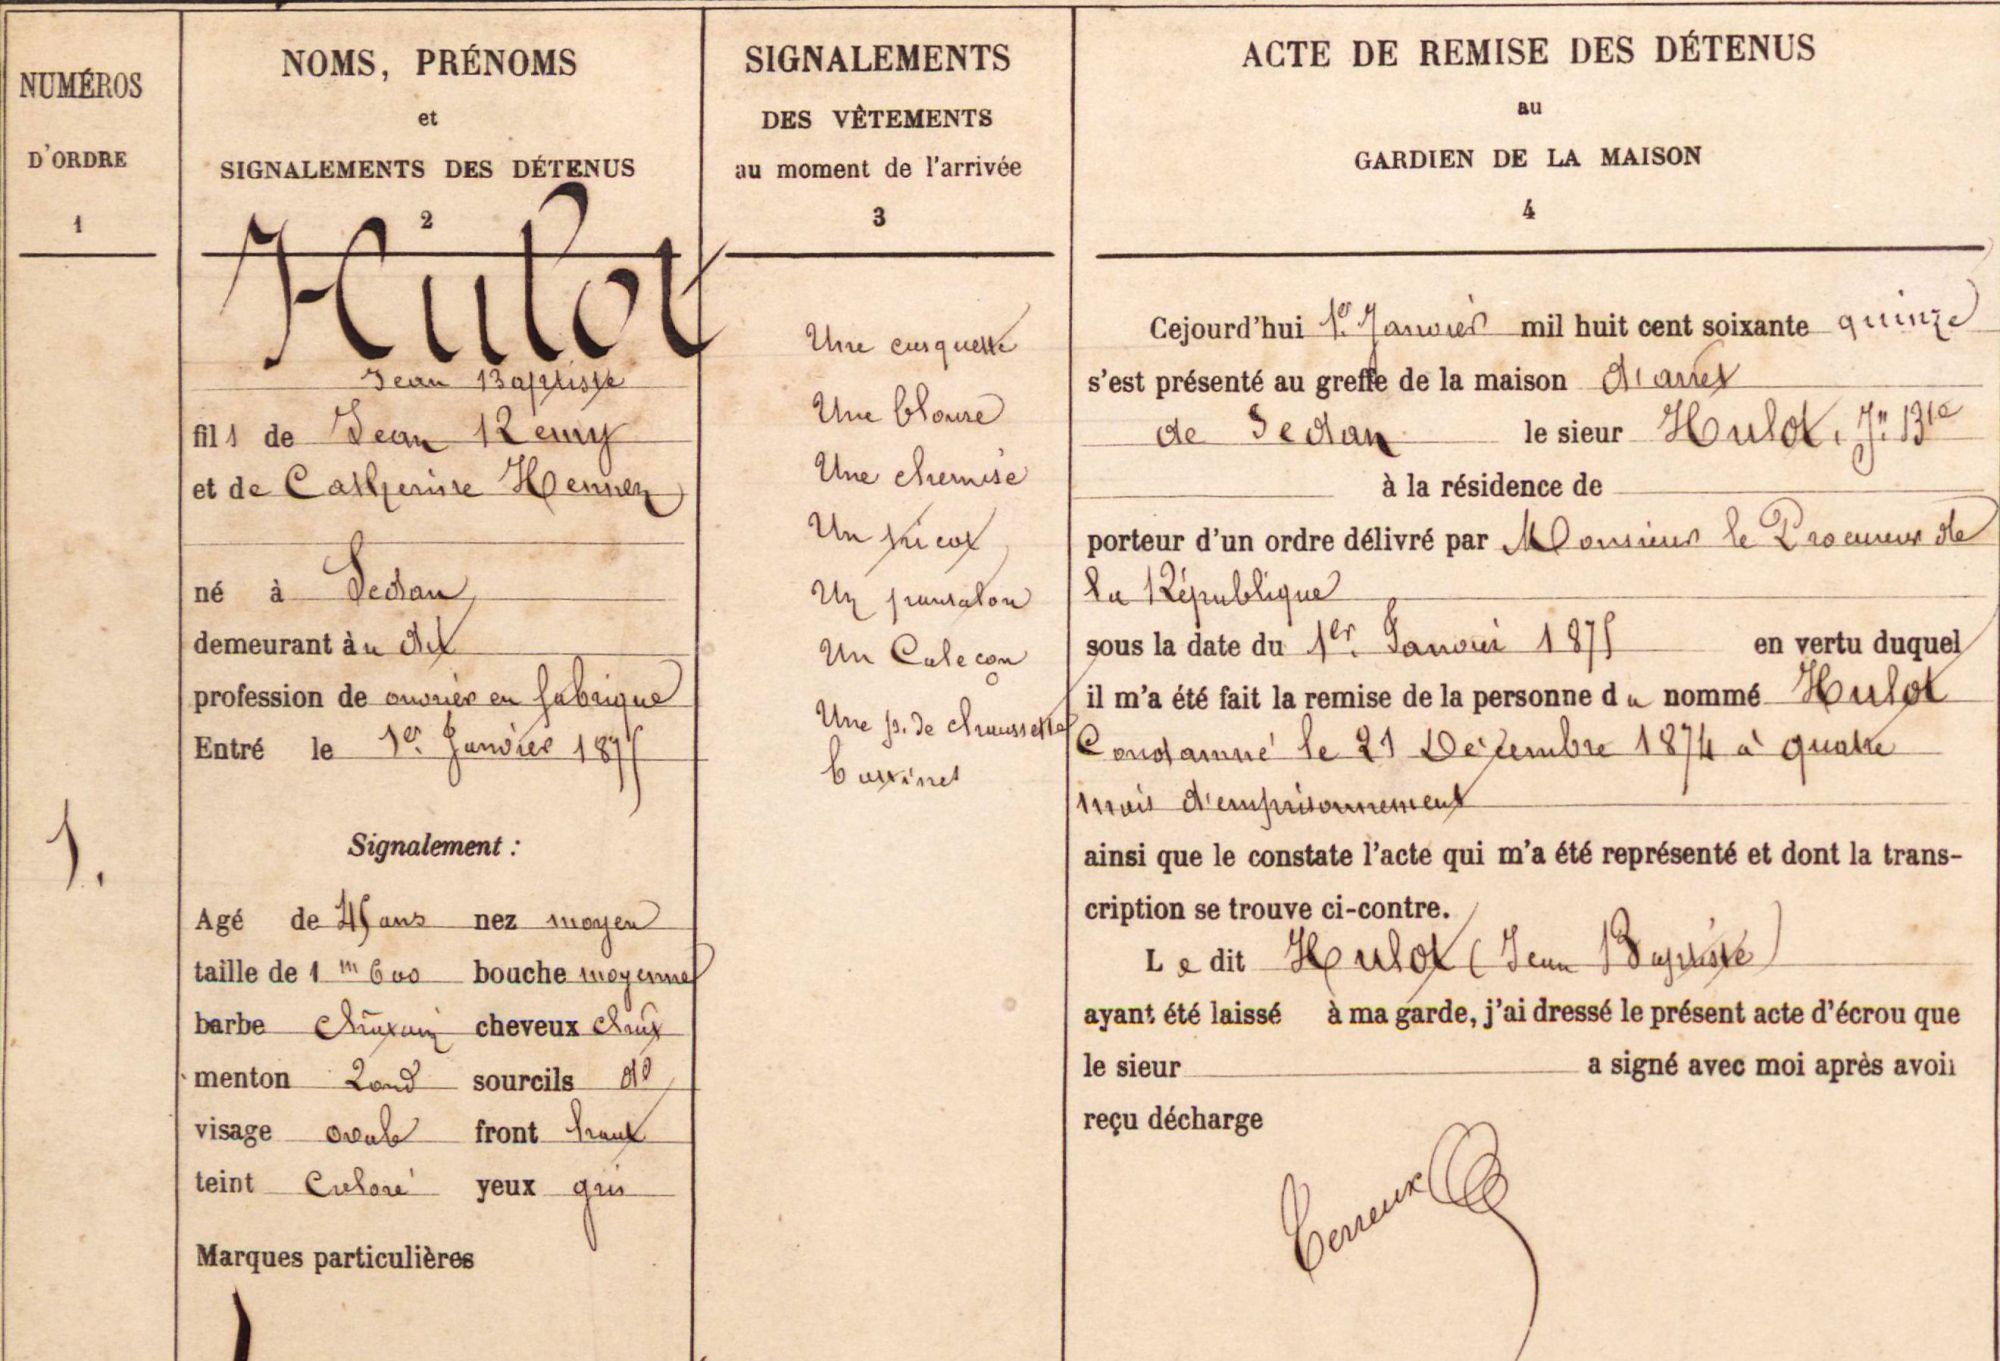 NUMÉROS
D'ORDRE
1
1.
NOMS, PRÉNOMS
et
SIGNALEMENTS DES DÉTENUS
2
Hulot
Jean Baptiste
fils de Jean Remy
et de Catherine Hennen
né à Sedan
demeurant à u dit
profession de ouvrier en fabrique
Entré le 1er. Janvier 1875
Signalement :
Agé de 45 ans nez moyen
taille de 1 m 600 bouche moyenne
barbe chatain cheveux chat
menton Rond sourcils do
visage ovale front haut
teint coloré yeux gris
Marques particulières
SIGNALEMENTS
DES VÊTEMENTS
au moment de l'arrivée
3
Une casquette
Une blouse
Une chemise
Un tricot
Un pantalon
Un Caleçon
Une p. de chaussette
bottines
ACTE DE REMISE DES DÉTENUS
au
GARDIEN DE LA MAISON
4
Cejourd'hui 1er. Janvier mil huit cent soixante quinze
s'est présenté au greffe de la maison d'arret
de Sedan le sieur Hulot, Jn Bte
à la résidence de
porteur d'un ordre délivré par Monsieur le Procureur de
la République
sous la date du 1er. Janvier 1875 en vertu duquel
il m'a été fait la remise de la personne du nommé Hulot
Condamné le 21 Décembre 1874 à quatre
mois d'emprisonnement
ainsi que le constate l'acte qui m'a été représenté et dont la trans-
cription se trouve ci-contre.
Le dit Hulot (Jean Baptiste)
ayant été laissé à ma garde, j'ai dressé le présent acte d'écrou que
le sieur a signé avec moi après avoir
reçu décharge
Terreux